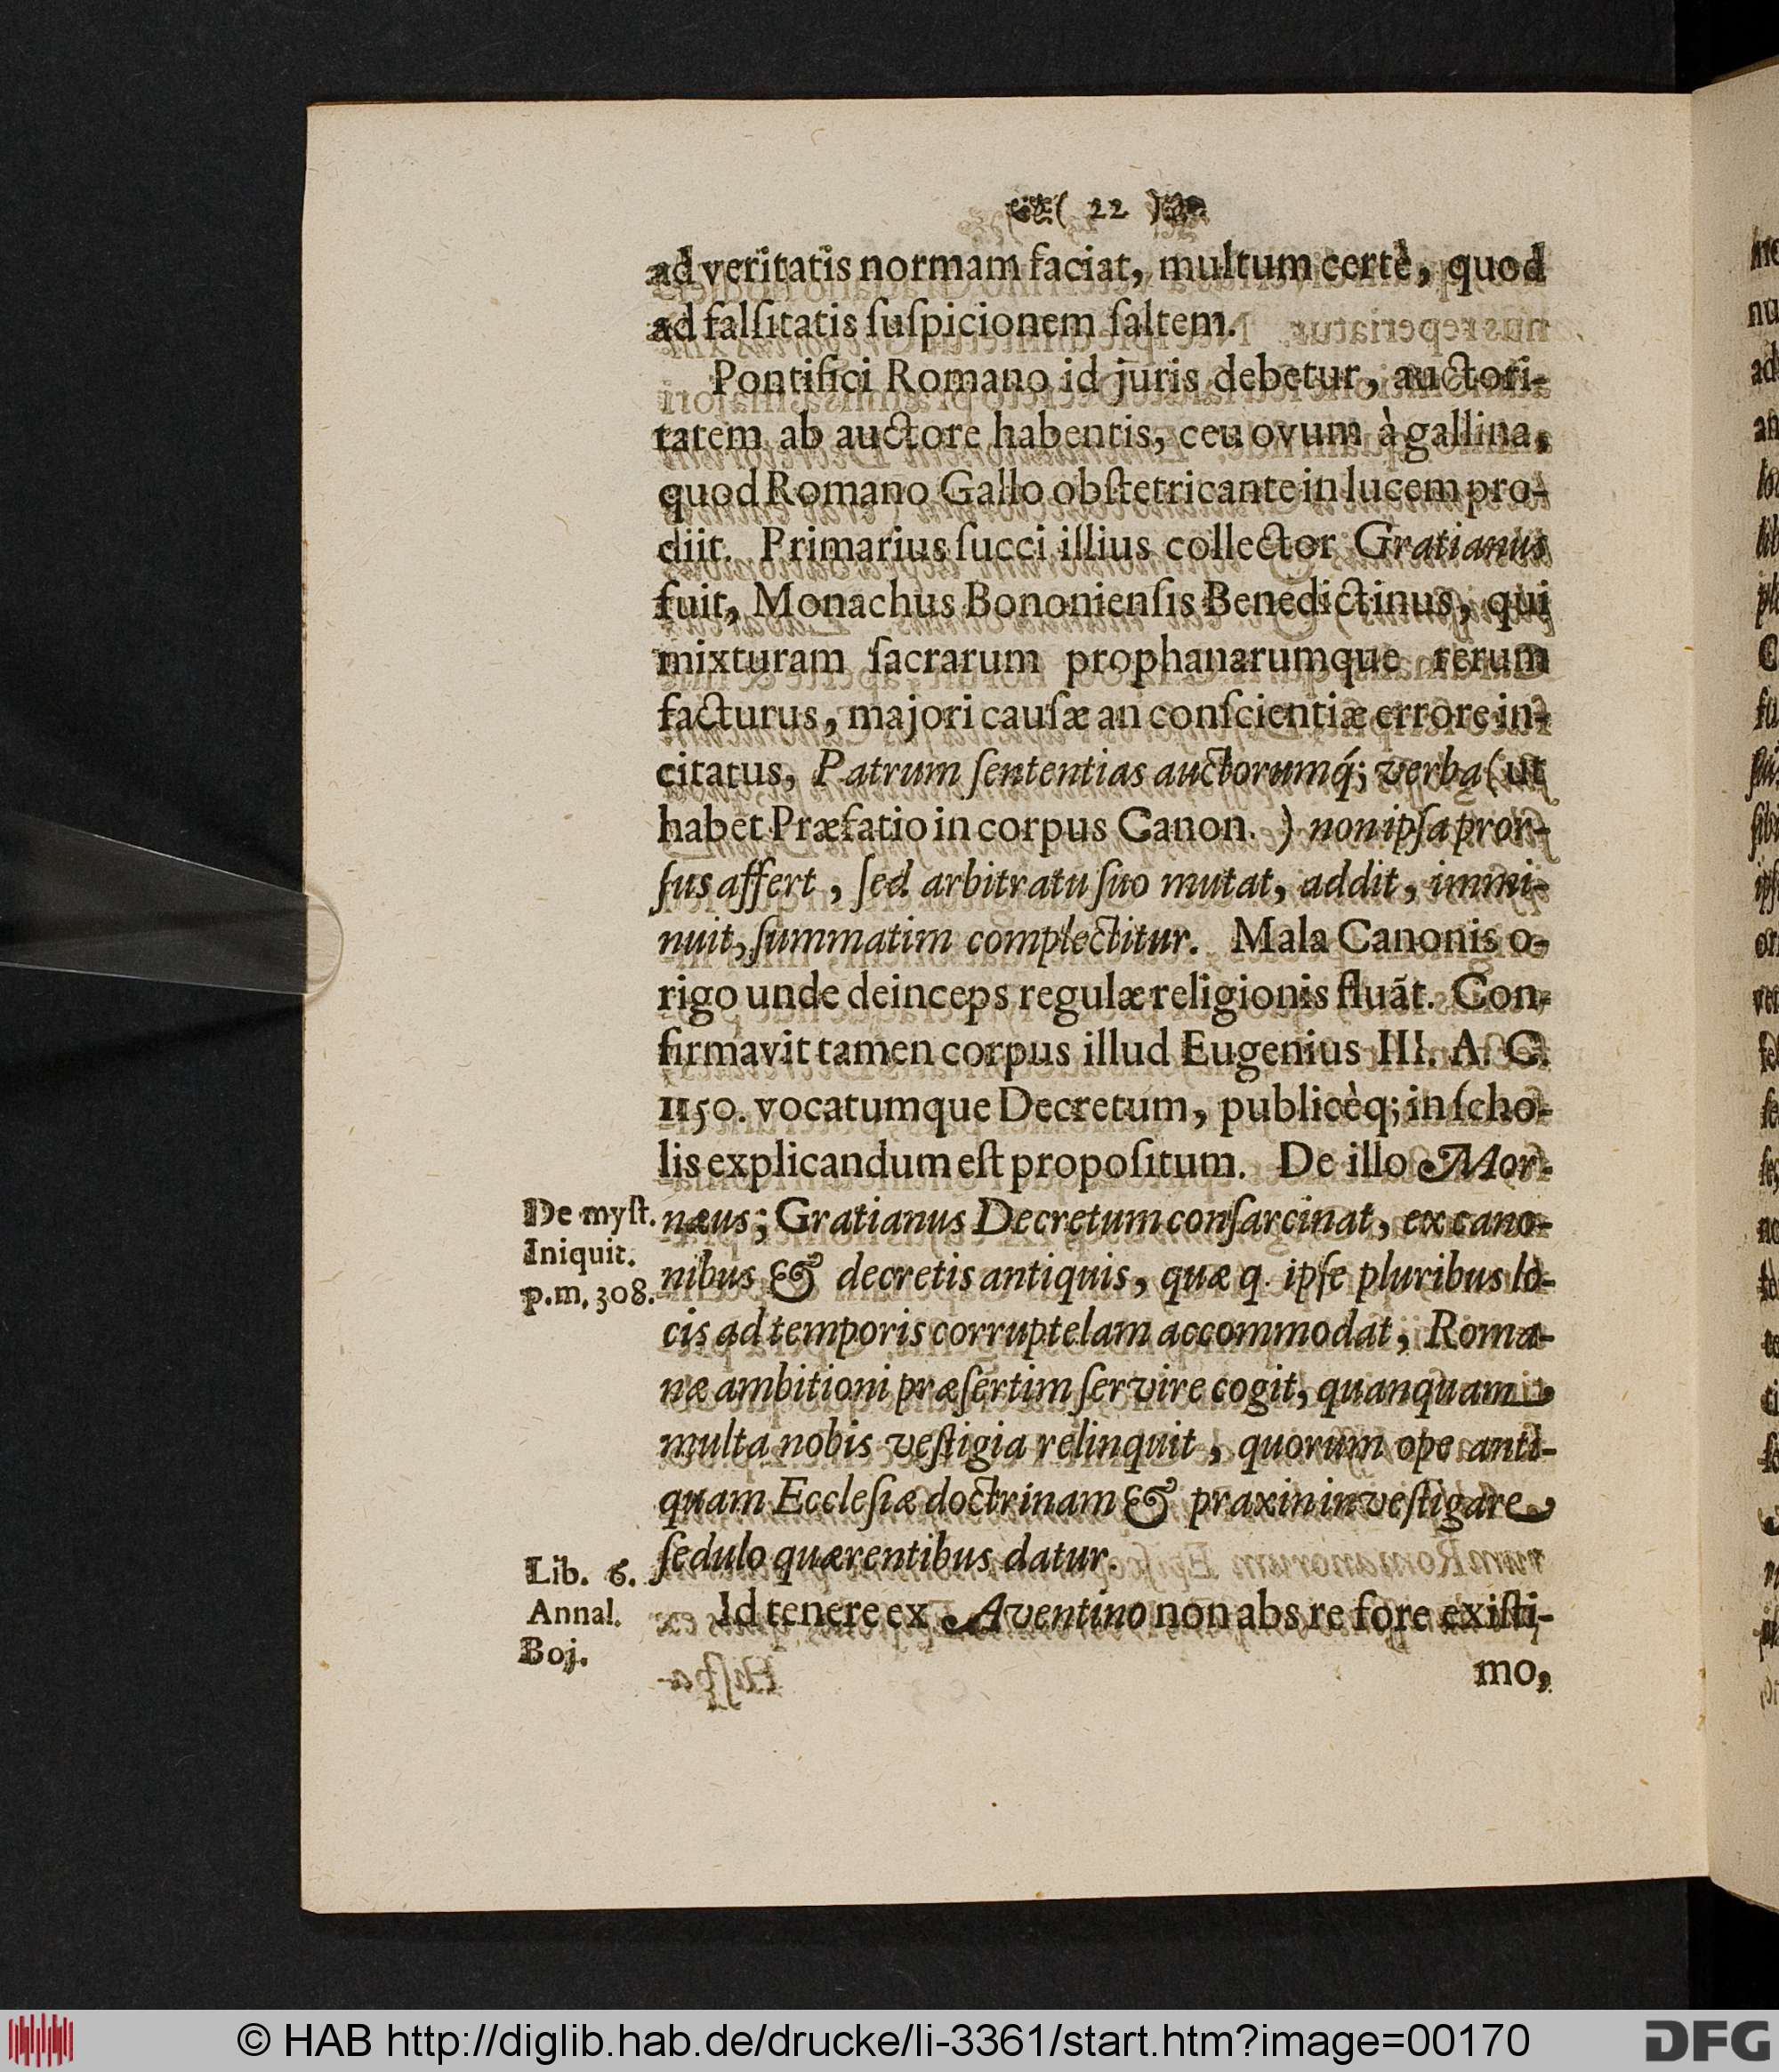 ( 22 )
ad veritatis normam faciat, multum certè, quod
ad falſitatis ſuſpicionem ſaltem.
Pontifici Romano id juris debetur, auctori-
tatem ab auctore habentis, ceu ovum à gallina,
quod Romano Gallo obſtetricante in lucem pro-
diit. Primarius ſucci illius collector Gratianus
fuit, Monachus Bononienſis Benedictinus, qui
mixturam ſacrarum prophanarumque rerum
facturus, majori cauſæ an conſcientiæ errore in-
citatus, Patrum ſententias auctorumq́; verba (ut
habet Præfatio in corpus Canon. ) non ipſa pror-
ſus affert, ſed arbitratu ſuo mutat, addit, immi-
nuit, ſummatim complectitur. Mala Canonis o-
rigo unde deinceps regulæ religionis fluãt. Con-
firmavit tamen corpus illud Eugenius III. A. C.
1150. vocatumque Decretum, publicèq; in ſcho-
lis explicandum eſt propoſitum. De illo Mor-
De myſt.
Iniquit.
p.m. 308.
næus; Gratianus Decretum conſarcinat, ex cano-
nibus & decretis antiquis, quæ q. ipſe pluribus lo-
cis ad temporis corruptelam accommodat, Roma-
næ ambitioni præſertim ſervire cogit, quanquam
multa nobis veſtigia relinquit, quorum ope anti-
quam Eccleſiæ doctrinam & praxin inveſtigare
ſedulo quærentibus datur.
Lib. 6.
Annal.
Boj.
Id tenere ex Aventino non abs re fore exiſti-
mo,
© HAB http://diglib.hab.de/drucke/li-3361/start.htm?image=00170
DFG